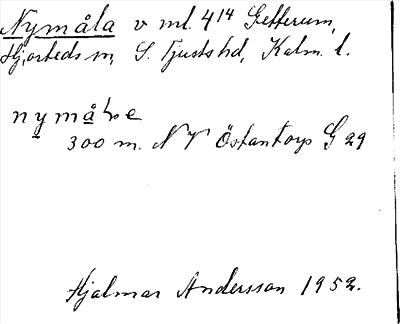 Nymåla v ml. 4¹⁴ Gefferum,
Hjorteds sn, S. Tjusts hd, Kalm. l.
nymåla
300 m. NV Östantorp G 29
Hjalmar Andersson 1952.